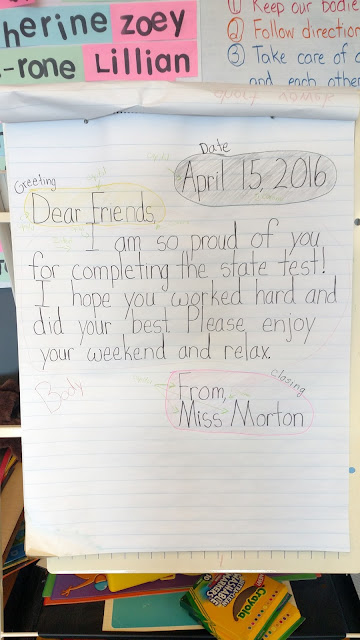 herine zoey
-rone Lillian
① Keep our bodie
② Follow direction
③ Take care of
and each othe
Date
April 15, 2016
Greeting
Dear Friends,
I am so proud of you
for completing the state test!
I hope you worked hard and
did your best. Please enjoy
your weekend and relax.
Body
closing
From,
Miss Morton
Crayola